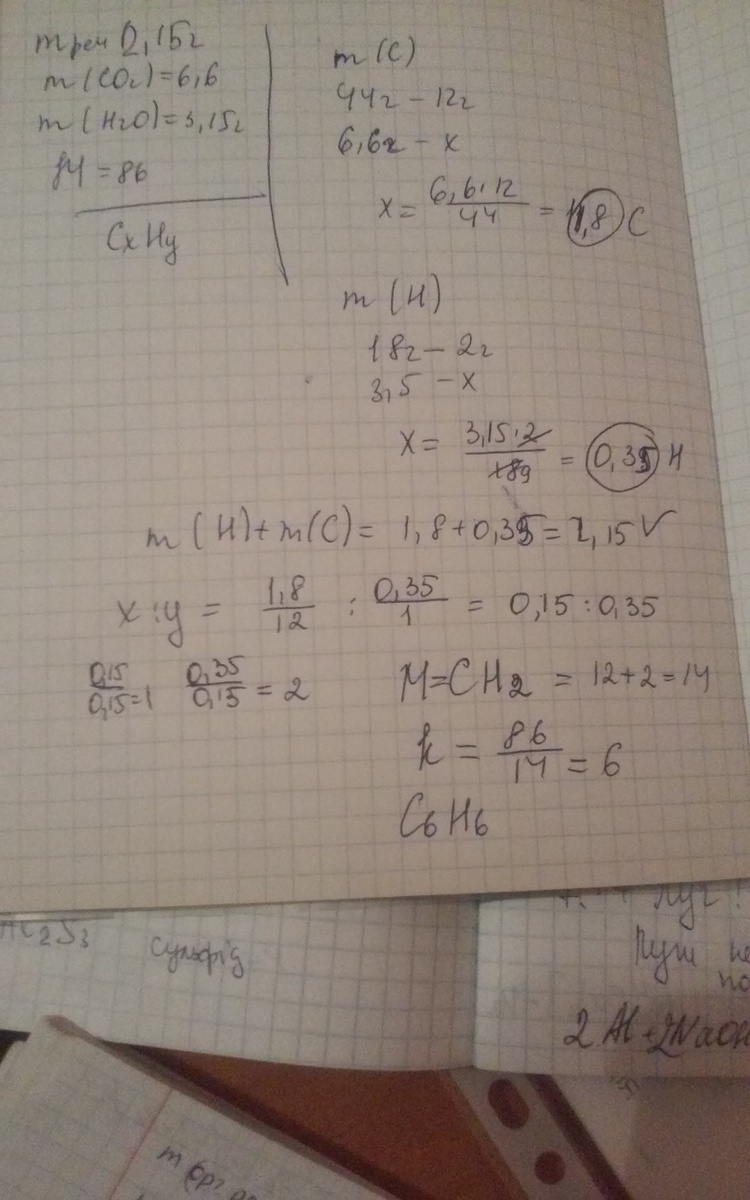 m реч 2,15г
m (CO2) = 6,6
m (H2O) = 3,15г
M = 86
CxHy
m (C)
44г – 12г
6,6г – x
x = 6,6·12 / 44 = 1,8 C
m (H)
18г – 2г
3,5 – x
x = 3,15·2 / 18 9 = 0,35 H
m (H) + m(C) = 1,8 + 0,35 = 2,15 ✓
x : y = 1,8 / 12 : 0,35 / 1 = 0,15 : 0,35
0,15 / 0,15 = 1 0,35 / 0,15 = 2 M = CH2 = 12 + 2 = 14
k = 86 / 14 = 6
C6H6
Al2S3
сульфід
луг
Луги не
по
2 Al + 2NaOH
m (орг